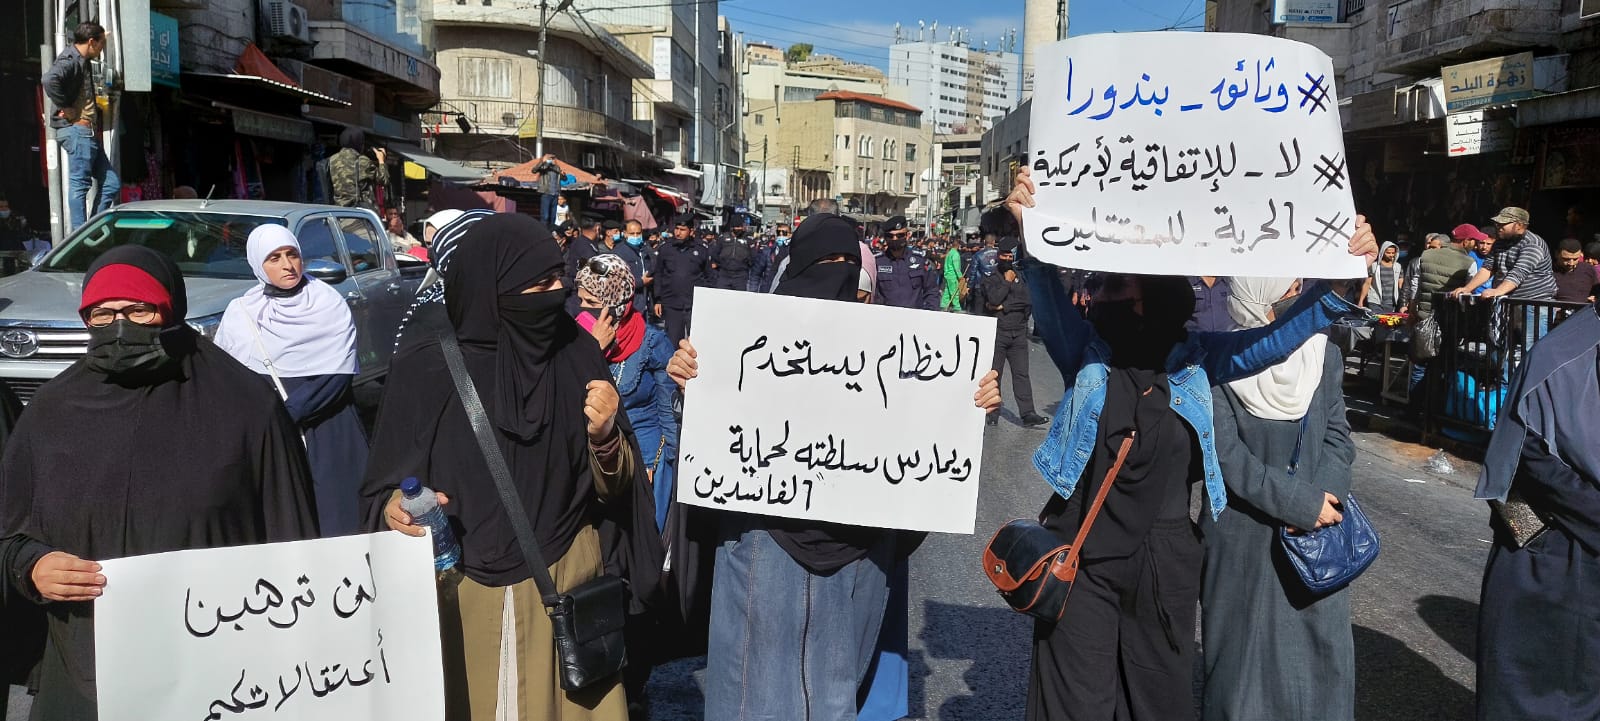 #وثائق_بندورا
#لا_للإتفاقية الأمريكية
#الحرية_للمعتقلين
النظام يستخدم
ويمارس سلطته لحماية
"الفاسدين"
لن ترهبنا
أعتقالاتكم
زهرة البلد